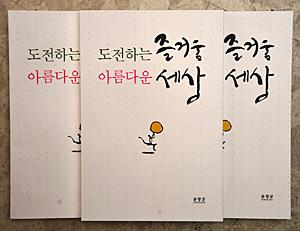 도전하는
아름다운
도전하는
아름다운
즐거운
세상
즐거운
세상